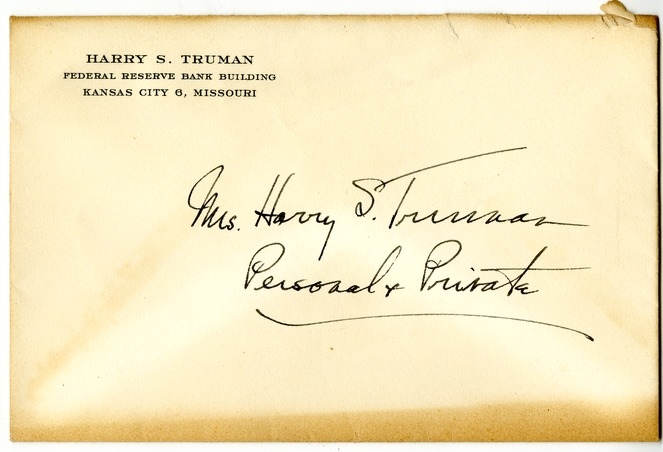 HARRY S. TRUMAN
FEDERAL RESERVE BANK BUILDING
KANSAS CITY 6, MISSOURI
Mrs. Harry S. Truman
Personal & Private